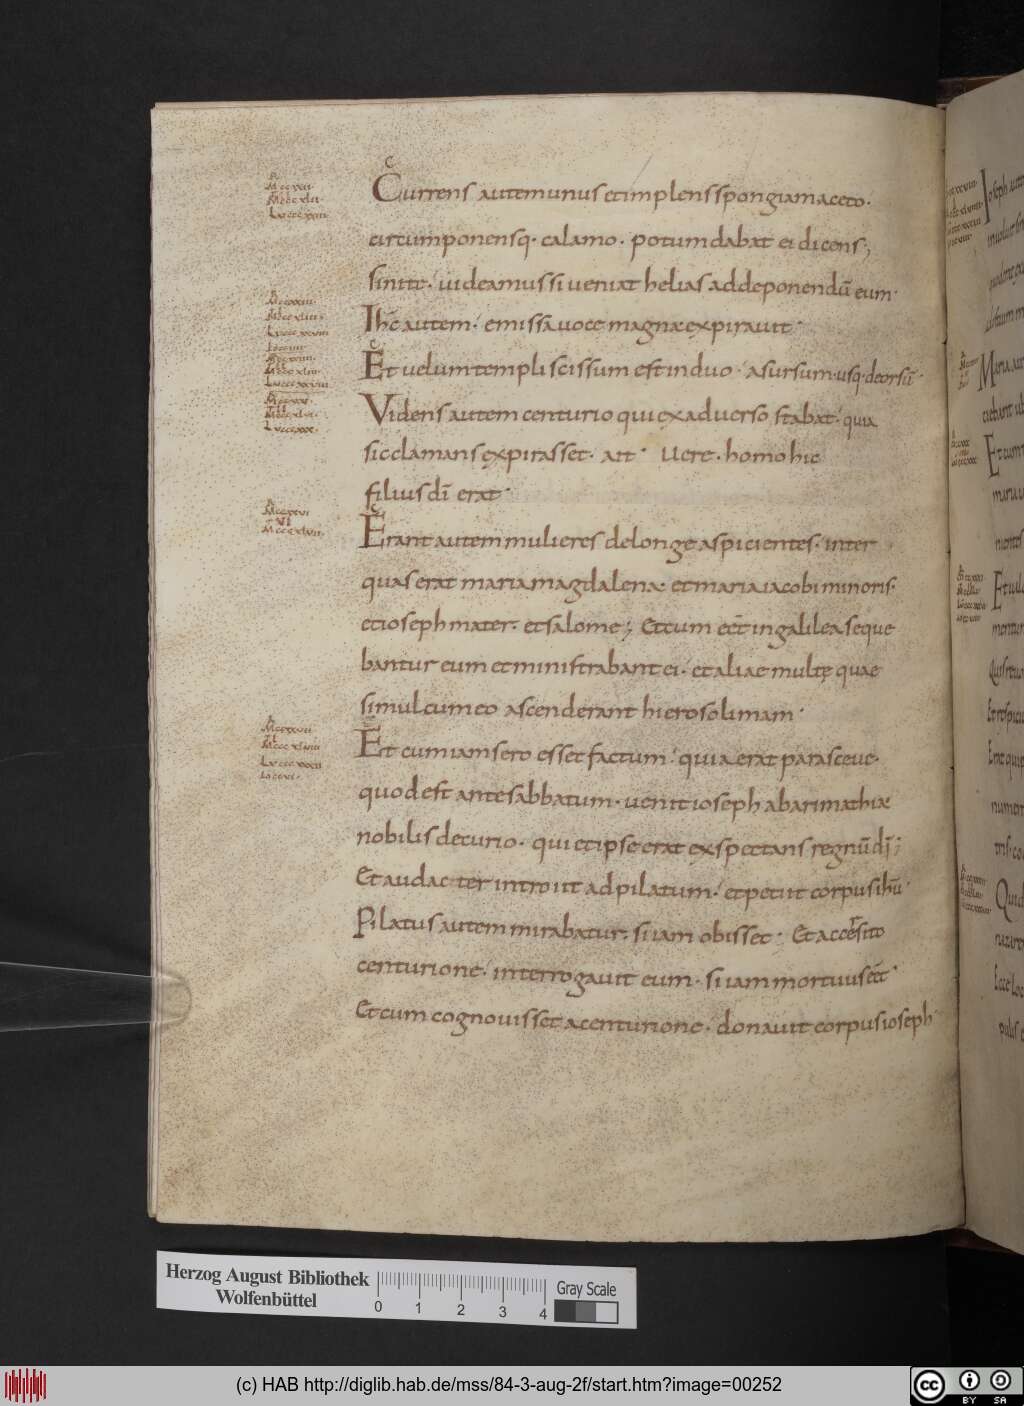 Currens autem unus et implens spongiam aceto.
circumponensq. calamo. potum dabat ei dicens;
sinite. uideamus si ueniat helias ad deponendū eum.
Ihc̄ autem. emissa uoce magna expirauit.
Et uelum templi scissum est in duo. a sursum. usq. deorsū.
Videns autem centurio qui ex aduerso stabat. quia
sic clamans expirasset. ait. Uere. homo hic
filius dī erat.
Erant autem mulieres de longe aspicientes. inter
quas erat maria magdalenae et maria iacobi minoris.
et ioseph mater. et salome; Et cum eēt in galilea seque
bantur eum et ministrabant ei. et aliae multę quae
simul cum eo ascenderant hierosolimam.
Et cum iam sero esset factum. quia erat parasceue.
quod est ante sabbatum. uenit ioseph ab arimathiæ
nobilis decurio. qui et ipse erat exspectans regnū dī;
Et audacter introiit ad pilatum. et petiit corpus ihū.
Pilatus autem mirabatur. si iam obisset. Et accersito
centurione. interrogauit eum. si iam mortuus eēt.
Et cum cognouisset a centurione. donauit corpus ioseph
Herzog August Bibliothek
Wolfenbüttel
0 1 2 3 4
Gray Scale
(c) HAB http://diglib.hab.de/mss/84-3-aug-2f/start.htm?image=00252
cc BY SA